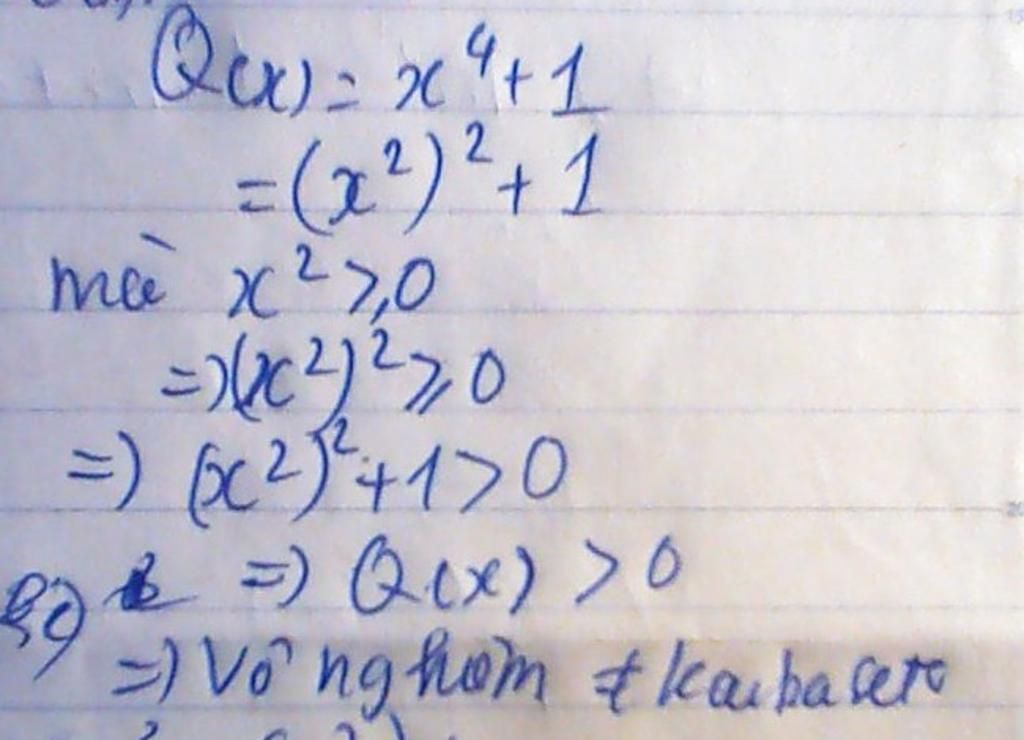 Q(x) = x⁴ + 1
= (x²)² + 1
mà x² ≥ 0
=> (x²)² ≥ 0
=> (x²)² + 1 > 0
=> Q(x) > 0
=> Vô nghiệm